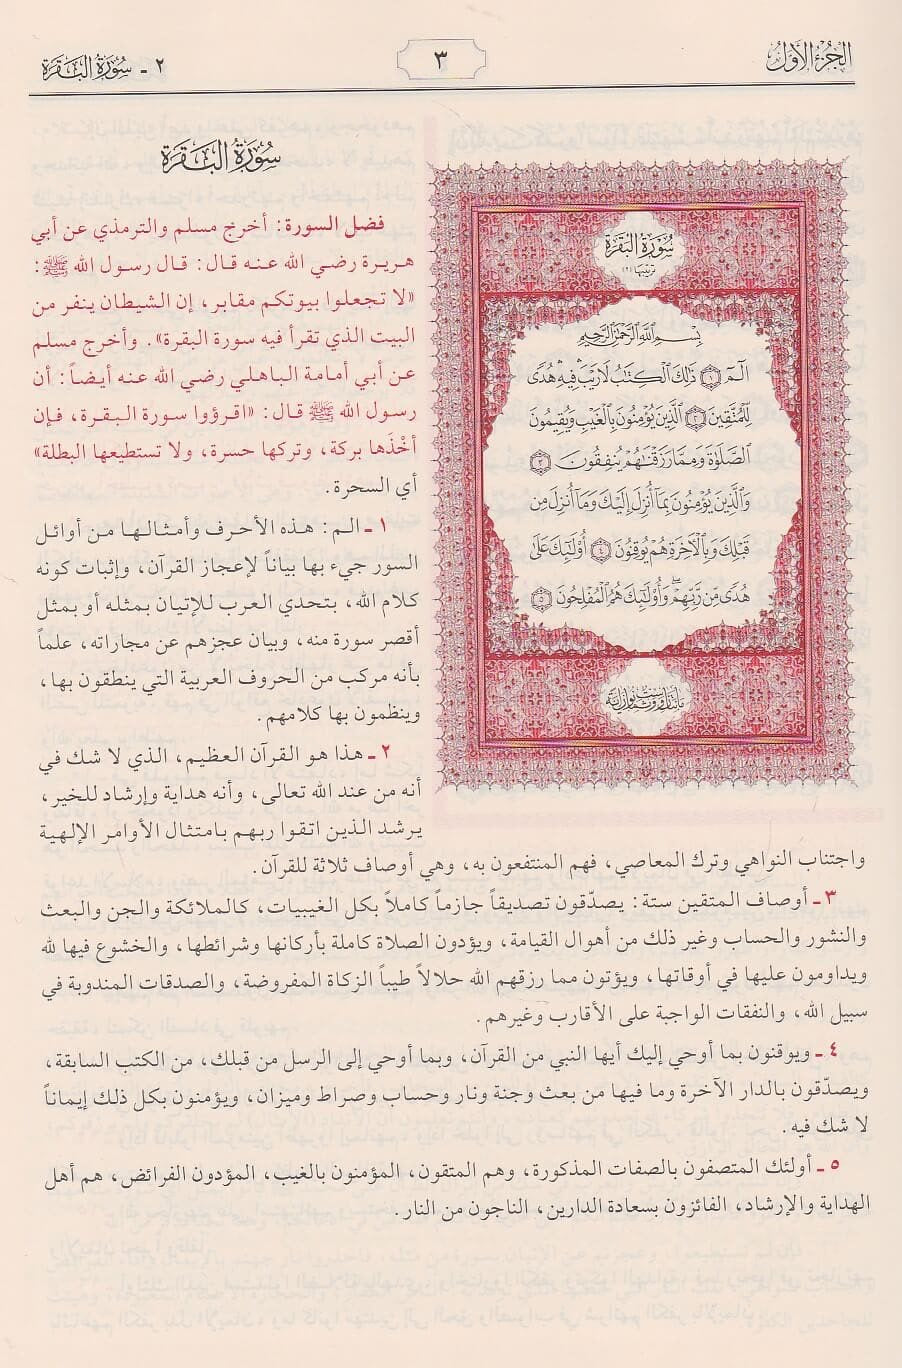 الجزء الأول
٣
٢ - سورة البقرة
سُورَةُ البَقَرَةِ
ترتيبها (٢)
بِسْمِ اللَّهِ الرَّحْمَٰنِ الرَّحِيمِ
الٓمٓ ١ ذَٰلِكَ ٱلْكِتَٰبُ لَا رَيْبَ ۛ فِيهِ ۛ هُدًى
لِّلْمُتَّقِينَ ٢ ٱلَّذِينَ يُؤْمِنُونَ بِٱلْغَيْبِ وَيُقِيمُونَ
ٱلصَّلَوٰةَ وَمِمَّا رَزَقْنَٰهُمْ يُنفِقُونَ ٣
وَٱلَّذِينَ يُؤْمِنُونَ بِمَآ أُنزِلَ إِلَيْكَ وَمَآ أُنزِلَ مِن
قَبْلِكَ وَبِٱلْءَاخِرَةِ هُمْ يُوقِنُونَ ٤ أُو۟لَٰٓئِكَ عَلَىٰ
هُدًى مِّن رَّبِّهِمْ ۖ وَأُو۟لَٰٓئِكَ هُمُ ٱلْمُفْلِحُونَ ٥
سُورَةُ البَقَرَة
فضل السورة: أخرج مسلم والترمذي عن أبي
هريرة رضي الله عنه قال: قال رسول الله ﷺ:
«لا تجعلوا بيوتكم مقابر، إن الشيطان ينفر من
البيت الذي تقرأ فيه سورة البقرة». وأخرج مسلم
عن أبي أمامة الباهلي رضي الله عنه أيضاً: أن
رسول الله ﷺ قال: «اقرؤوا سورة البقرة، فإن
أخْذَها بركة، وتركها حسرة، ولا تستطيعها البطلة»
أي السحرة.
١ ـ الم: هذه الأحرف وأمثالها من أوائل
السور جيء بها بياناً لإعجاز القرآن، وإثبات كونه
كلام الله، بتحدي العرب للإتيان بمثله أو بمثل
أقصر سورة منه، وبيان عجزهم عن مجاراته، علماً
بأنه مركب من الحروف العربية التي ينطقون بها،
وينظمون بها كلامهم.
٢ ـ هذا هو القرآن العظيم، الذي لا شك في
أنه من عند الله تعالى، وأنه هداية وإرشاد للخير،
يرشد الذين اتقوا ربهم بامتثال الأوامر الإلهية
واجتناب النواهي وترك المعاصي، فهم المنتفعون به، وهي أوصاف ثلاثة للقرآن.
٣ ـ أوصاف المتقين ستة: يصدّقون تصديقاً جازماً كاملاً بكل الغيبيات، كالملائكة والجن والبعث
والنشور والحساب وغير ذلك من أهوال القيامة، ويؤدون الصلاة كاملة بأركانها وشرائطها، والخشوع فيها لله
ويداومون عليها في أوقاتها، ويؤتون مما رزقهم الله حلالاً طيباً الزكاة المفروضة، والصدقات المندوبة في
سبيل الله، والنفقات الواجبة على الأقارب وغيرهم.
٤ ـ ويوقنون بما أوحي إليك أيها النبي من القرآن، وبما أوحي إلى الرسل من قبلك، من الكتب السابقة،
ويصدّقون بالدار الآخرة وما فيها من بعث وجنة ونار وحساب وصراط وميزان، ويؤمنون بكل ذلك إيماناً
لا شك فيه.
٥ ـ أولئك المتصفون بالصفات المذكورة، وهم المتقون، المؤمنون بالغيب، المؤدون الفرائض، هم أهل
الهداية والإرشاد، الفائزون بسعادة الدارين، الناجون من النار.